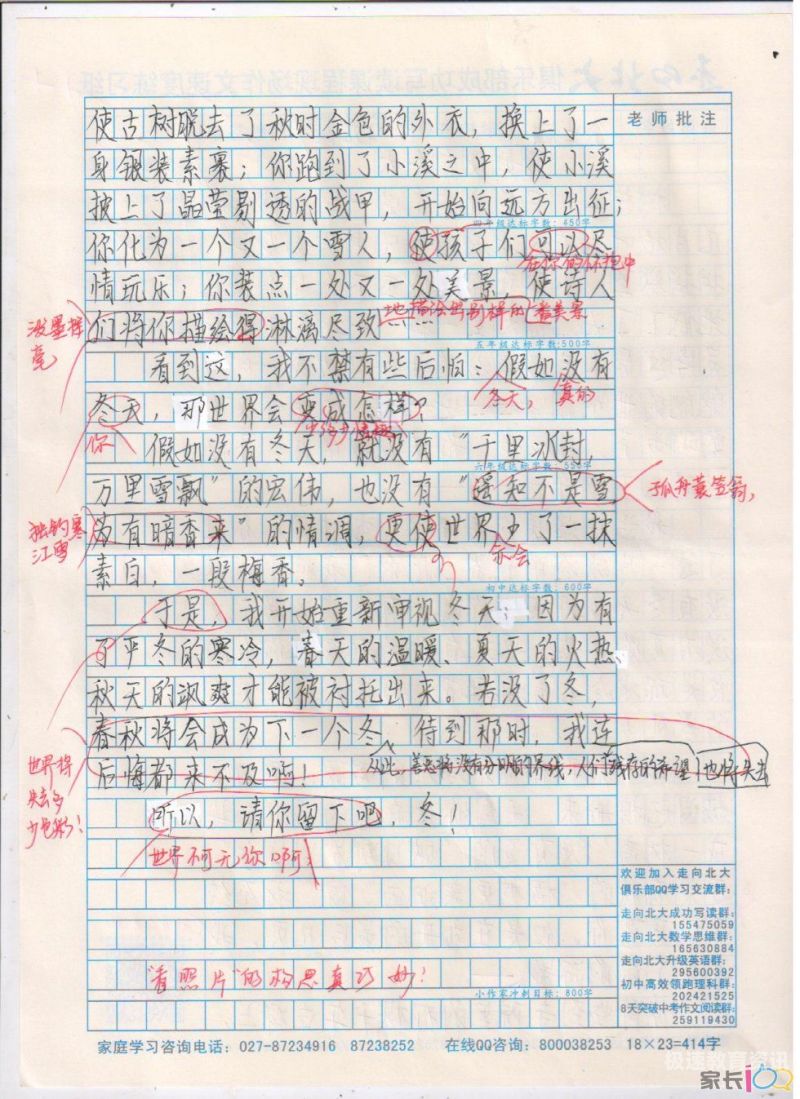 使古树脱去了秋时金色的外衣，换上了一
老师批注
身银装素裹；你跑到了小溪之中，使小溪
披上了晶莹剔透的战甲，开始向远方出征；
四年级达标字数：450字
你化为一个又一个雪人，使孩子们可以尽
在你的怀抱中
情玩乐；你装点一处又一处美景，使诗人
们将你描绘得淋漓尽致
地描绘出别样的
泼墨挥毫
五年级达标字数：500字
看到这，我不禁有些后怕：假如没有
冬天，真的
冬天，那世界会变成怎样？
你
假如没有冬天，就没有“千里冰封，
六年级达标字数：550字
万里雪飘”的宏伟，也没有“遥知不是雪
孤舟蓑笠翁，
独钓寒江雪
为有暗香来”的情调，更使世界少了一抹
素白，一段梅香。
初中达标字数：600字
于是，我开始重新审视冬天；因为有
了严冬的寒冷，春天的温暖、夏天的火热、
秋天的飒爽才能被衬托出来。若没了冬，
春秋将会成为下一个冬，待到那时，我连
世界得失去多少色彩！
后悔都来不及啊！
从此，善恶将没有分明的界线，人们残存的希望也将失去
所以，请你留下吧，冬！
世界不可无你啊！
欢迎加入走向北大
俱乐部QQ学习交流群：
走向北大成功写读群：
155475059
走向北大数学思维群：
165630884
走向北大升级英语群：
295600392
初中高效领跑理科群：
202421525
8天突破中考作文阅读群：
259119430
“看照片”的构思真巧妙！
小作家冲刺目标：800字
家庭学习咨询电话：027-87234916 87238252 在线QQ咨询：800038253 18×23=414字
极速教育资讯
家长100